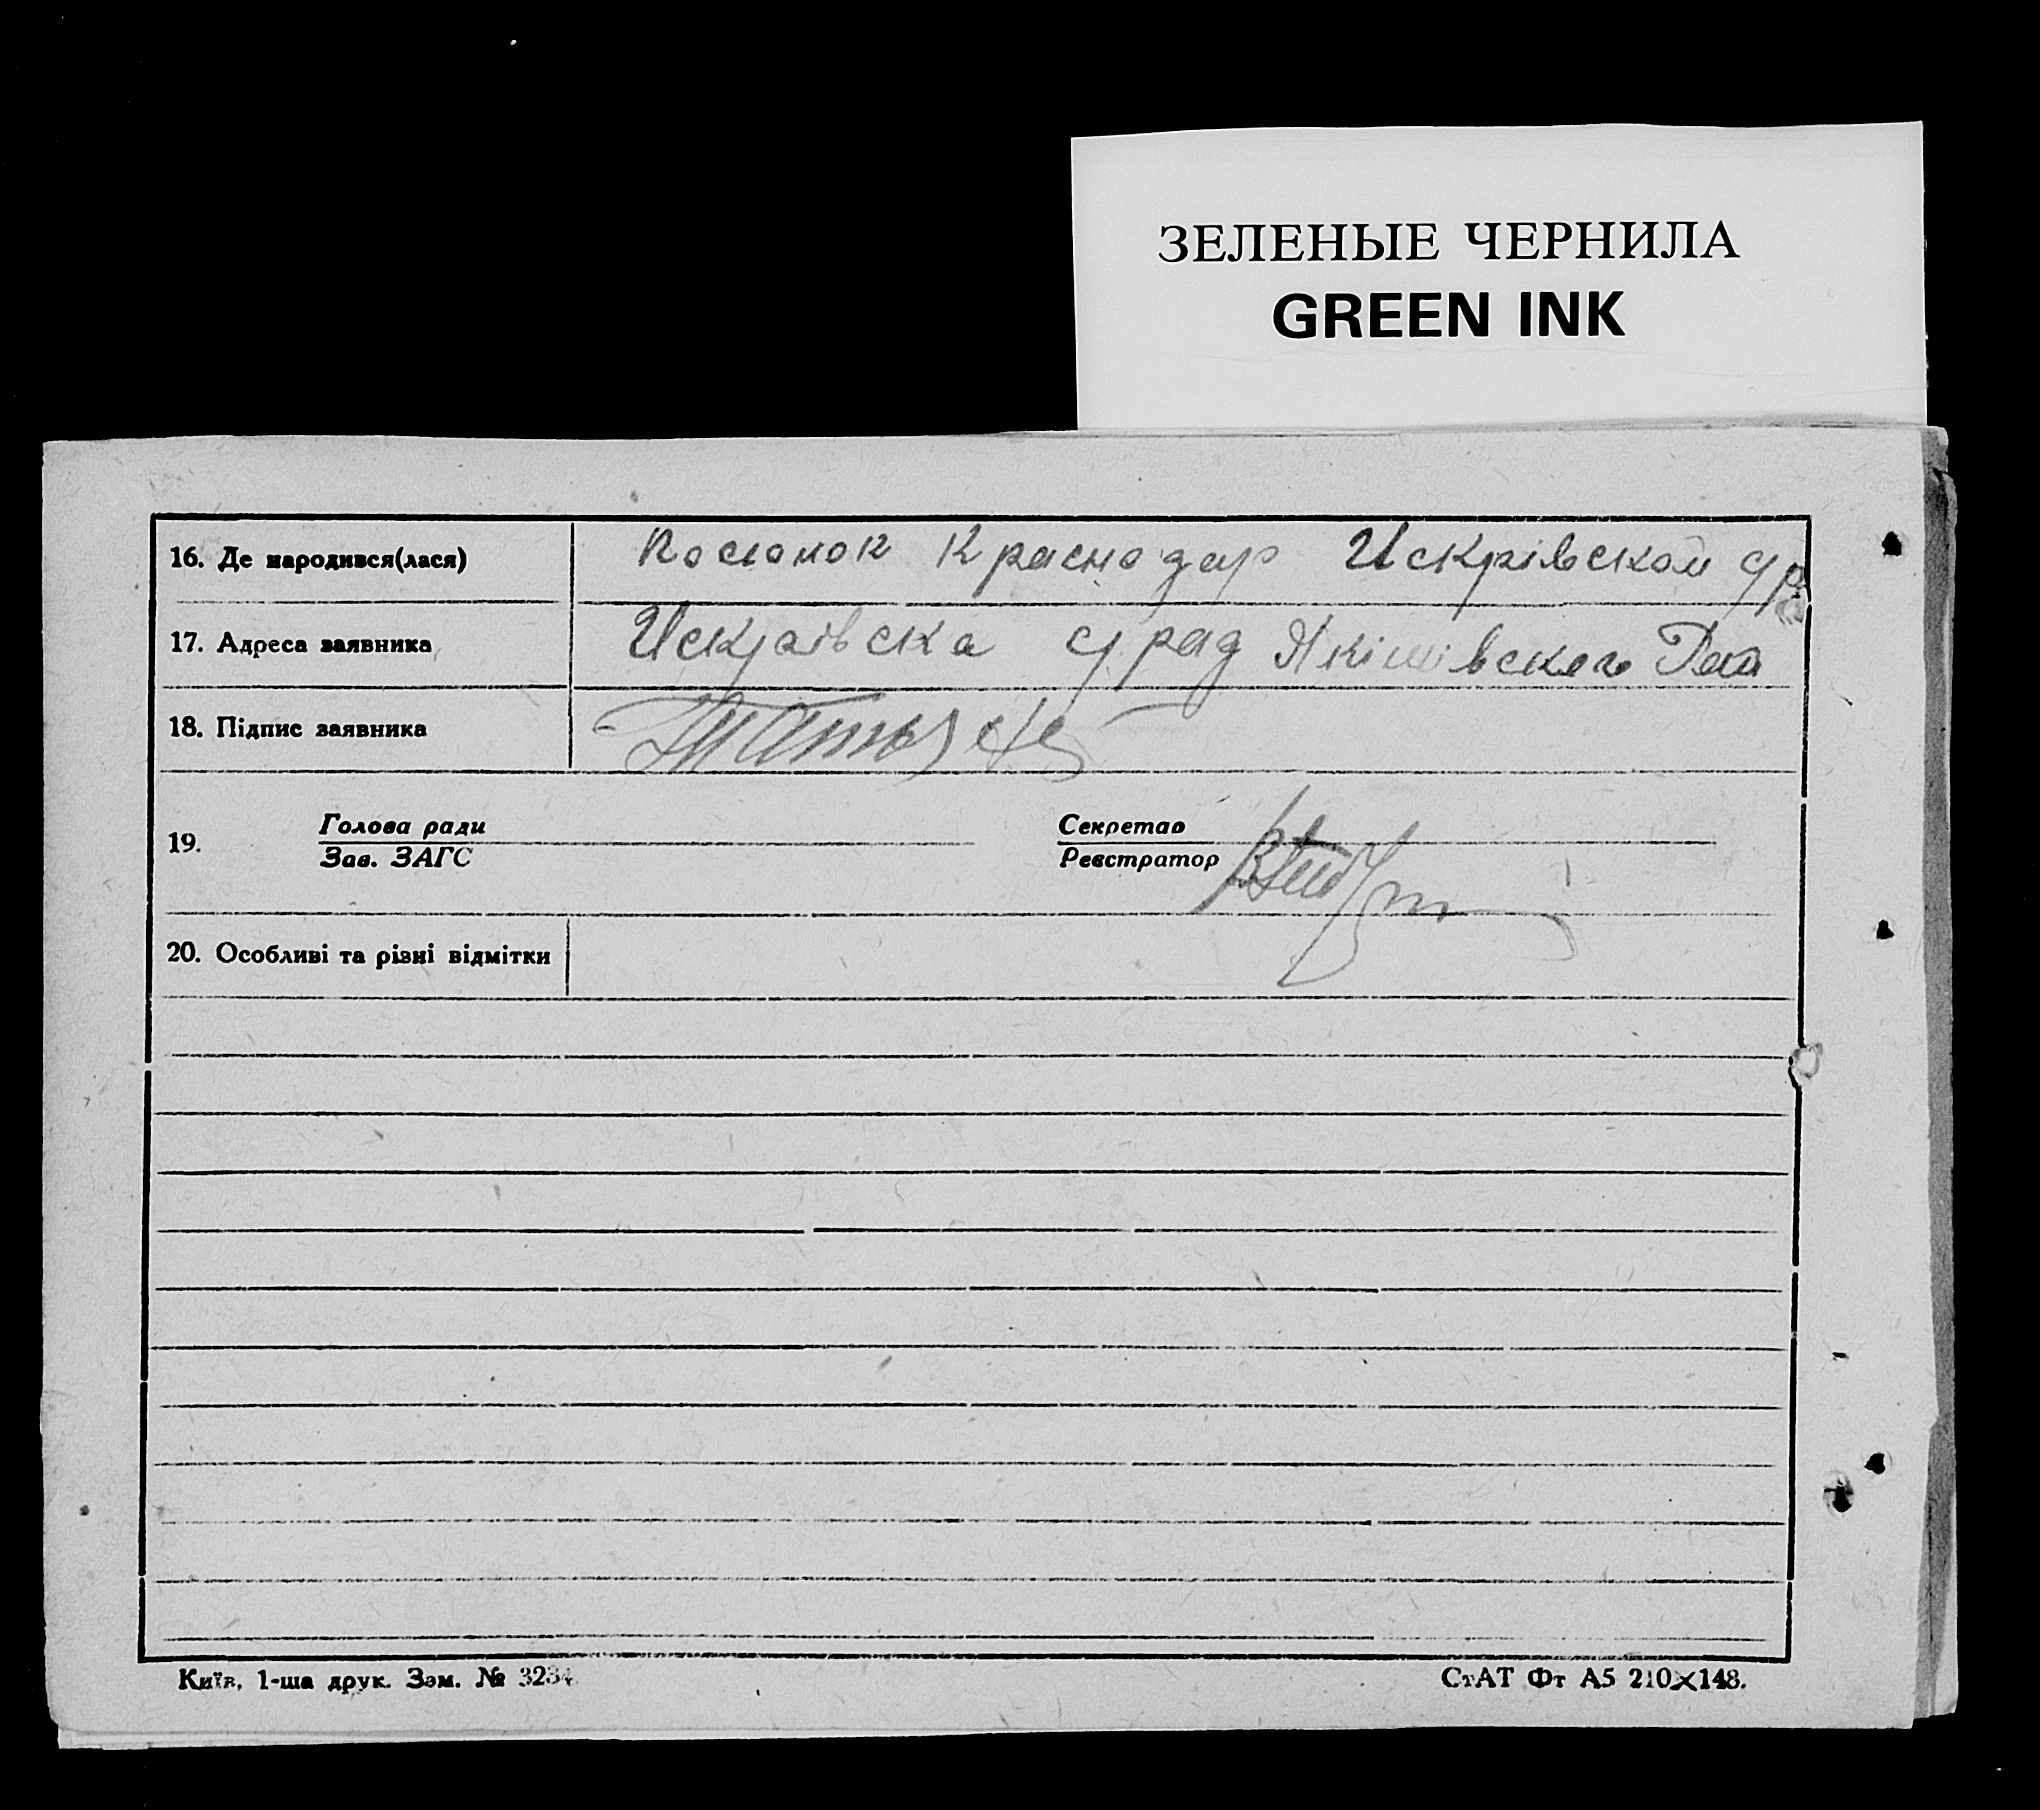 ЗЕЛЕНЫЕ ЧЕРНИЛА
GREEN INK
16. Де народився(лася) Посιолок Краснодар Искрівской с/р
17. Адреса заявника Искрівска с/рад Якімівского Рай
18. Підпис заявника
19. Голова ради
Зав. ЗАГС
Секретар
Реєстратор
20. Особливі та різні відмітки
Київ, 1-ша друк. Зам. № 3234
СтАТ Фт А5 210×148.